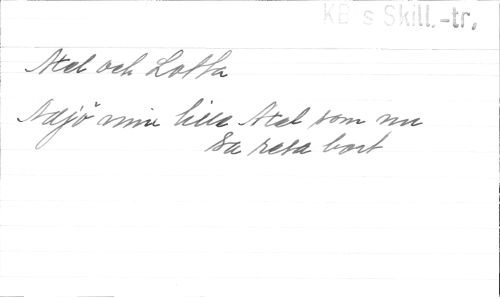 KB s Skill.-tr.
Axel och Lotta
Adjö min lille Axel som nu
ska resa bort